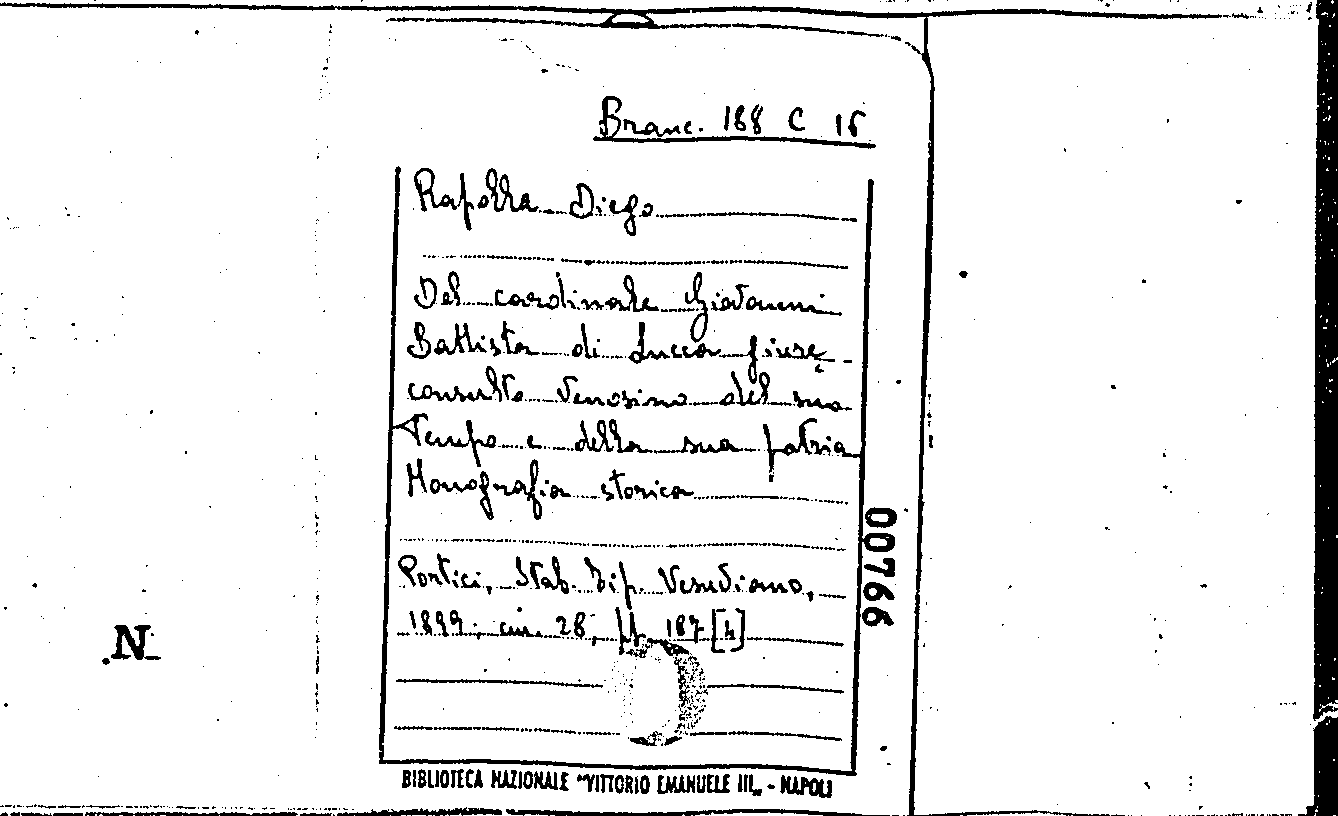 Branc. 168 C 15
Rapolla Diego
Del cardinale Giovanni
Battista di Lucca giure
consulto venosino del suo
Tempo e della sua patria
Monografia storica
Portici, Stab. Tip. Vesuviano,
1899; cm. 28, pp. 187 [4]
00766
.N
BIBLIOTECA NAZIONALE "VITTORIO EMANUELE III„ - NAPOLI